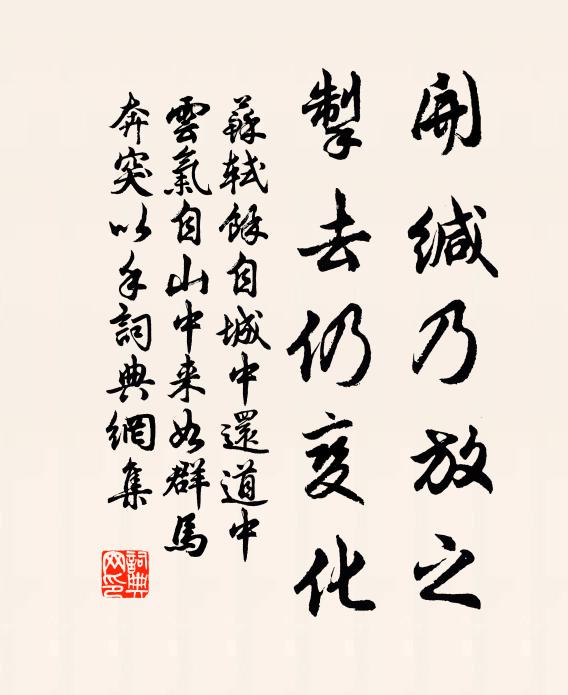 開緘乃放之
掣去仍变化
蘇軾餘自城中還道中
雲氣自山中来如群馬
奔突以手詞典網集
詞典
网印